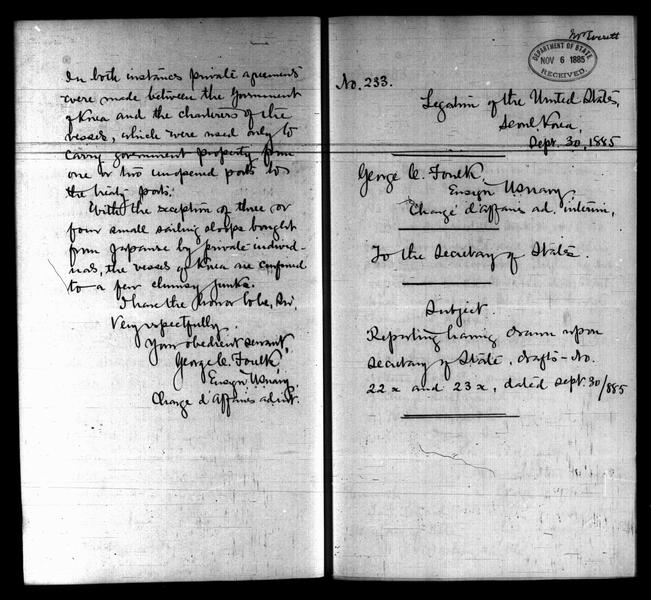 In both instances private agreements
were made between the Government
of Korea and the charterers of the
vessels, which were used only to
carry government property from
one or two unopened ports to
the treaty ports.
With the exception of three or
four small sailing sloops bought
from Japanese by private individ-
uals, the vessels of Korea are confined
to a few clumsy junks.
I have the honor to be, Sir,
Very respectfully
Your obedient servant,
George C. Foulk,
Ensign U.S. Navy,
Chargé d'Affaires ad int.
Everett
DEPARTMENT OF STATE
NOV 6 1885
RECEIVED.
No. 233.
Legation of the United States,
Seoul, Korea,
Sept. 30, 1885
George C. Foulk,
Ensign U.S. Navy,
Chargé d'Affaires ad. interim,
To the Secretary of State.
Subject.
Reporting having drawn upon
Secretary of State, drafts - No.
22x and 23x, dated Sept. 30/885